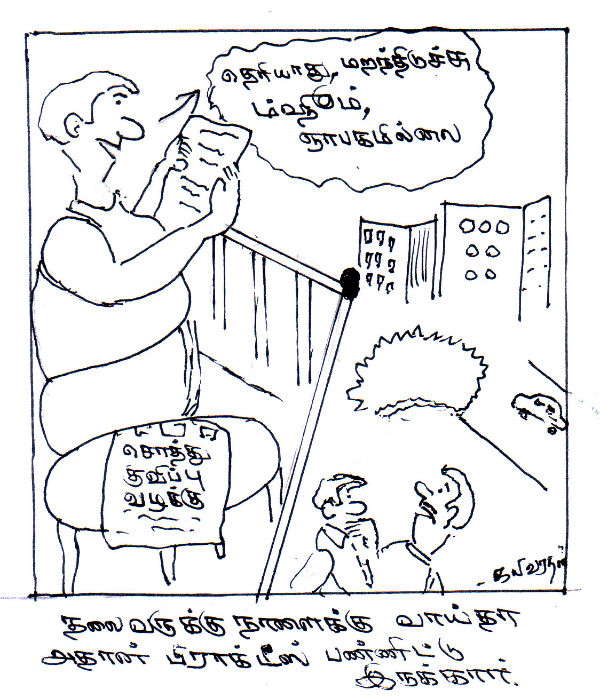 தெரியாது, மறந்திடுச்சு
ஞாபகமில்லை
சொத்து
குவிப்பு
வழக்கு
தலைவருக்கு நாளைக்கு வாய்தா
அதான் பிராக்டீஸ் பண்ணிட்டு
இருக்கார்.